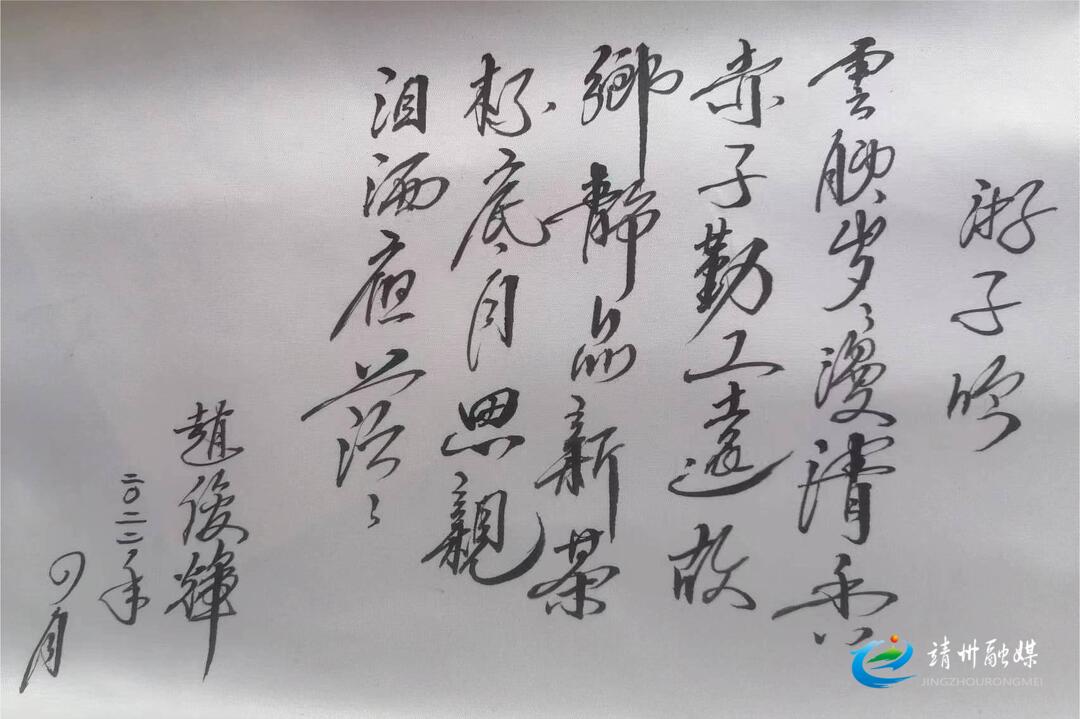 游子吟
雲腴岁〻漫清香
赤子勤工遠故
鄉静品新茶
杯底月思親
泪洒茫〻
趙俊輝
二〇二二年
四月
靖州融媒
JINGZHOURONGMEI